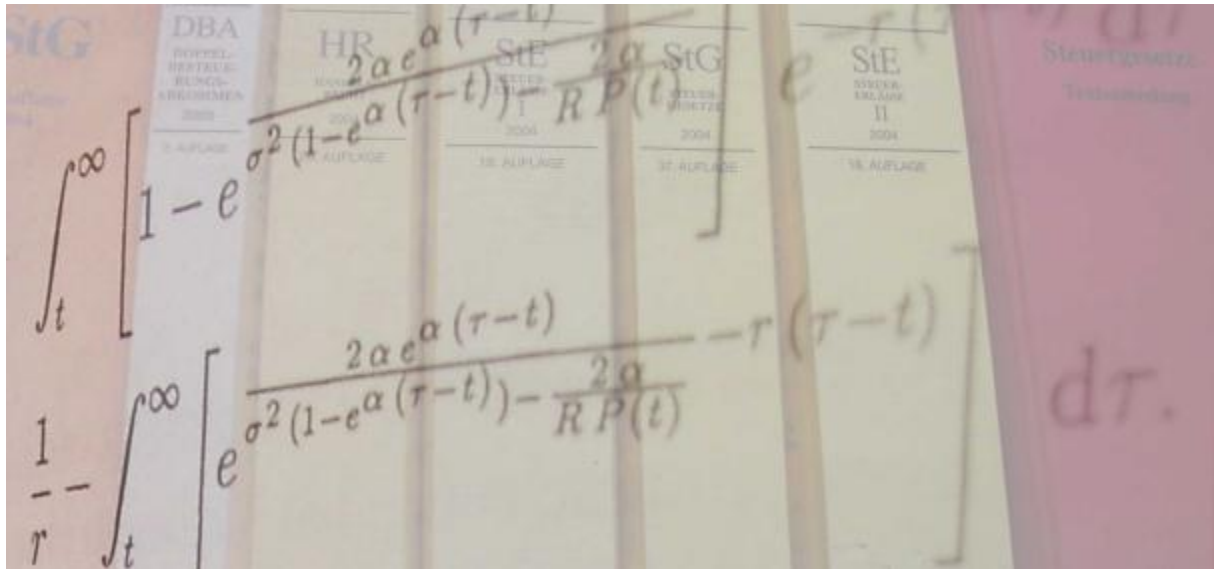 StG
DBA
DOPPEL-
BESTEUE-
RUNGS-
ABKOMMEN
HR
StE
I
2004
18. AUFLAGE
StG
STEUER-
GESETZE
2004
37. AUFLAGE
StE
STEUER-
ERLASSE
II
2004
18. AUFLAGE
Steuergesetze
Textsammlung
∫_t^∞ [1 − e^{2 α e^{α (τ−t)} / (σ² (1−e^{α (τ−t)}) − 2 α / (R P(t)))}] e^{−r (τ−t)} dτ
1/r − ∫_t^∞ [e^{2 α e^{α (τ−t)} / (σ² (1−e^{α (τ−t)}) − 2 α / (R P(t))) − r (τ−t)}] dτ.